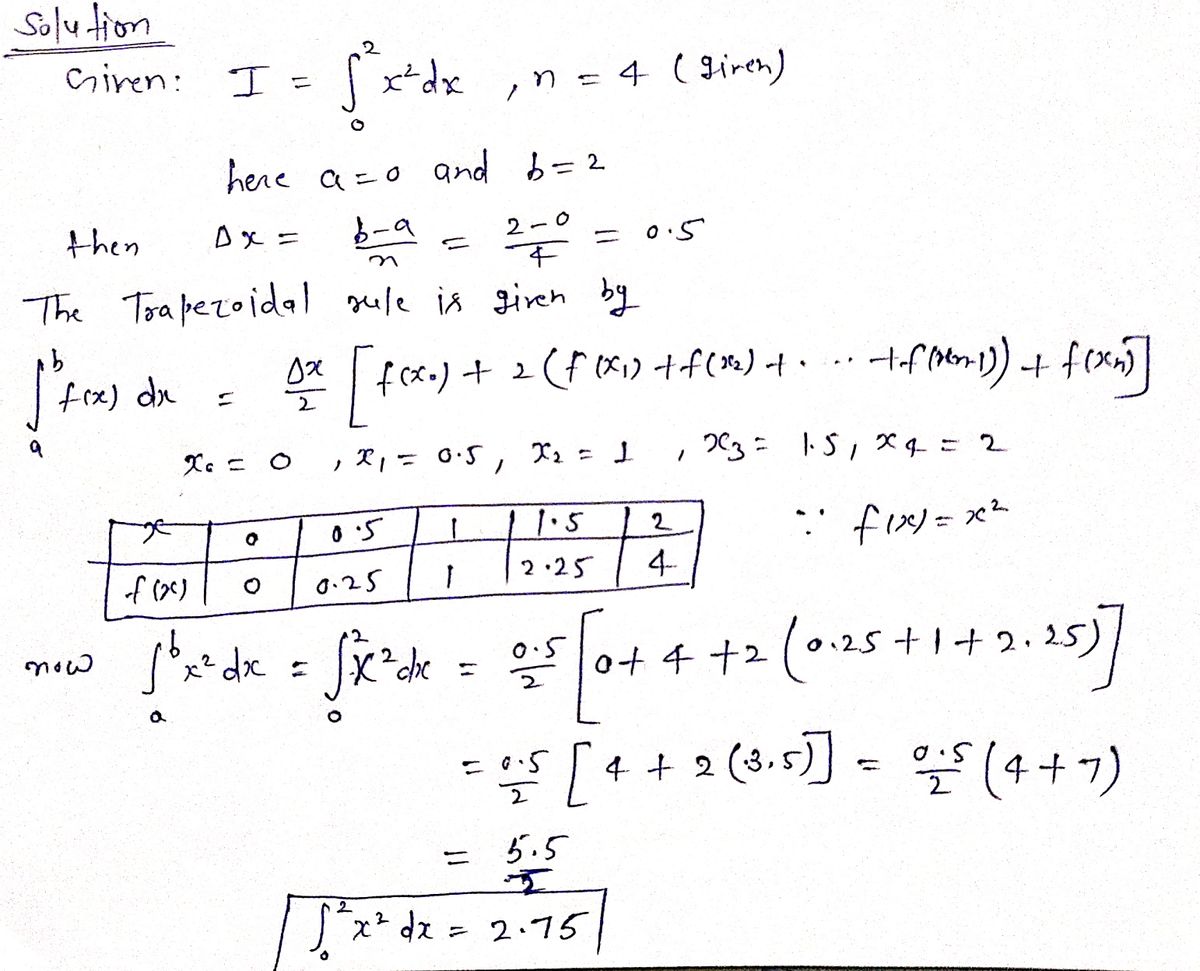 Solution
Given: I = ∫₀² x² dx , n = 4 (given)
here a = 0 and b = 2
then Δx = (b-a)/n = (2-0)/4 = 0.5
The Trapezoidal rule is given by
∫ₐᵇ f(x) dx = Δx/2 [ f(x₀) + 2 (f(x₁) + f(x₂) + . . . . + f(xₙ₋₁)) + f(xₙ)]
x₀ = 0 , x₁ = 0.5 , x₂ = 1 , x₃ = 1.5 , x₄ = 2
x 0 0.5 1 1.5 2 ∵ f(x) = x²
f(x) 0 0.25 1 2.25 4
now ∫ₐᵇ x² dx = ∫₀² x² dx = 0.5/2 [0 + 4 + 2 (0.25 + 1 + 2.25)]
= 0.5/2 [4 + 2 (3.5)] = 0.5/2 (4 + 7)
= 5.5/2
∫₀² x² dx = 2.75